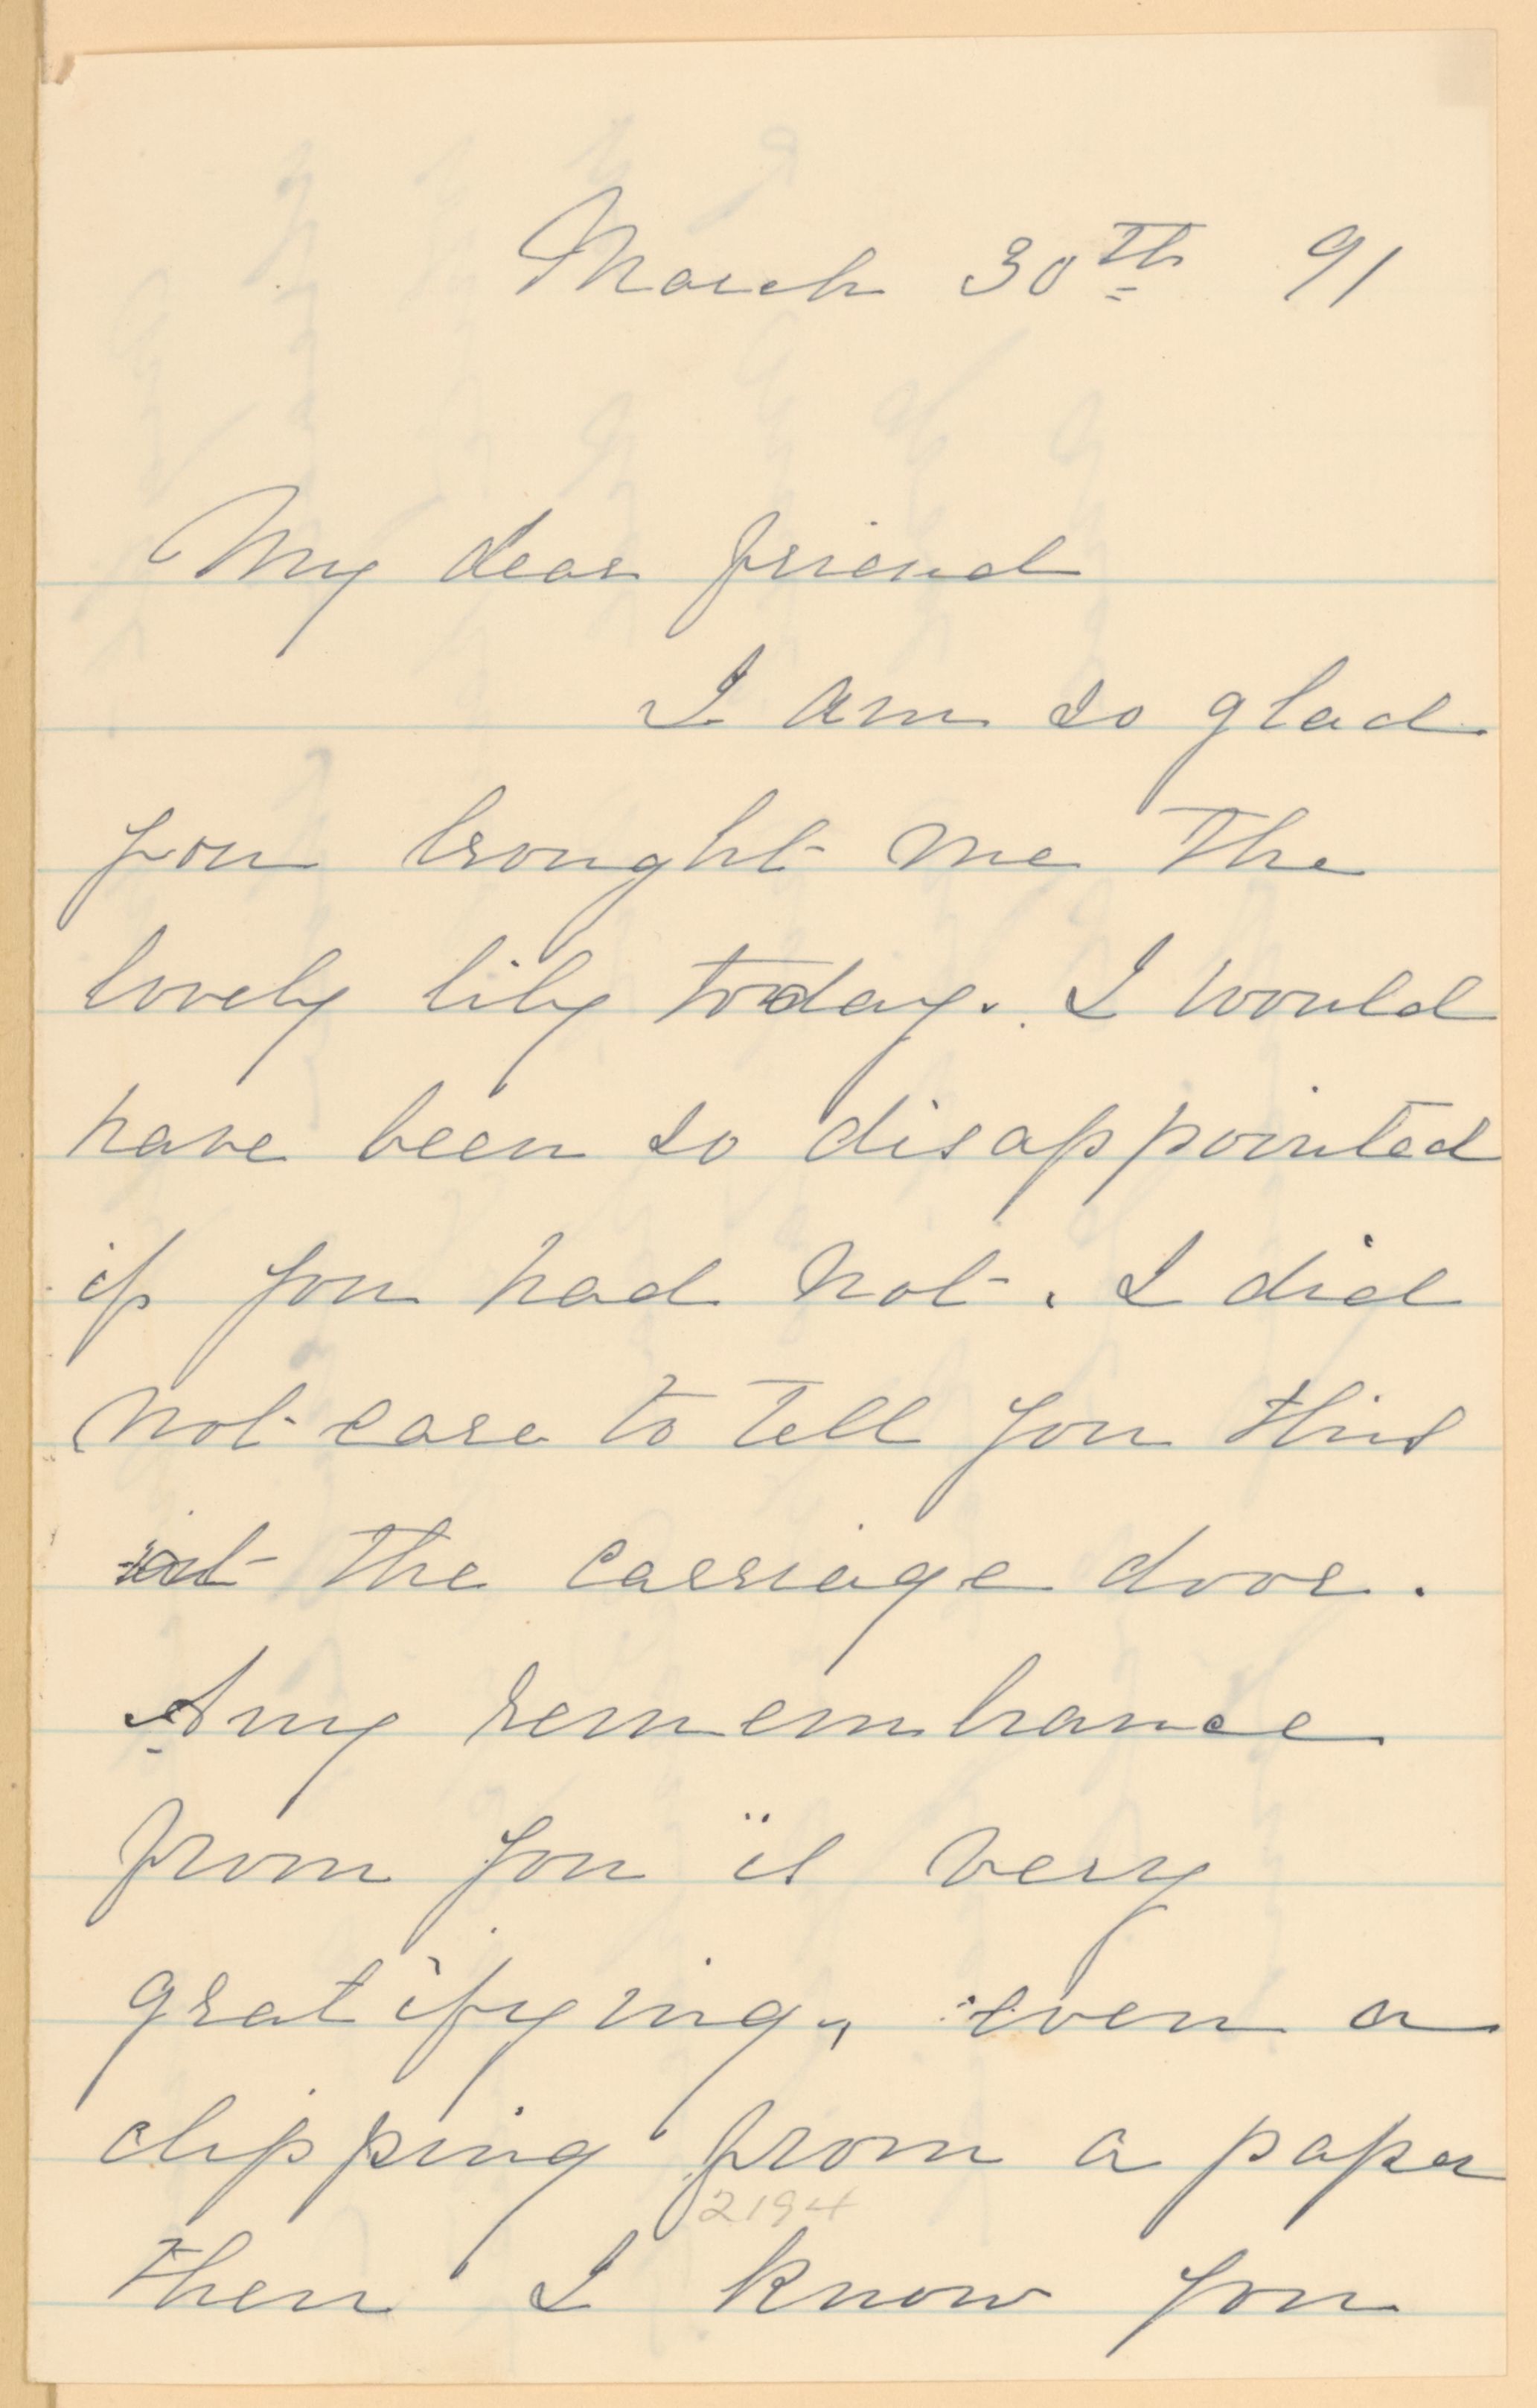 March 30th 91
My dear friend
I am so glad
you brought me the
lovely lily today. I would
have been so disappointed
if you had not. I did
not care to tell you this
at the carriage door.
Any remembrance
from you is very
gratifying, even a
clipping from a paper
2194
then I know you